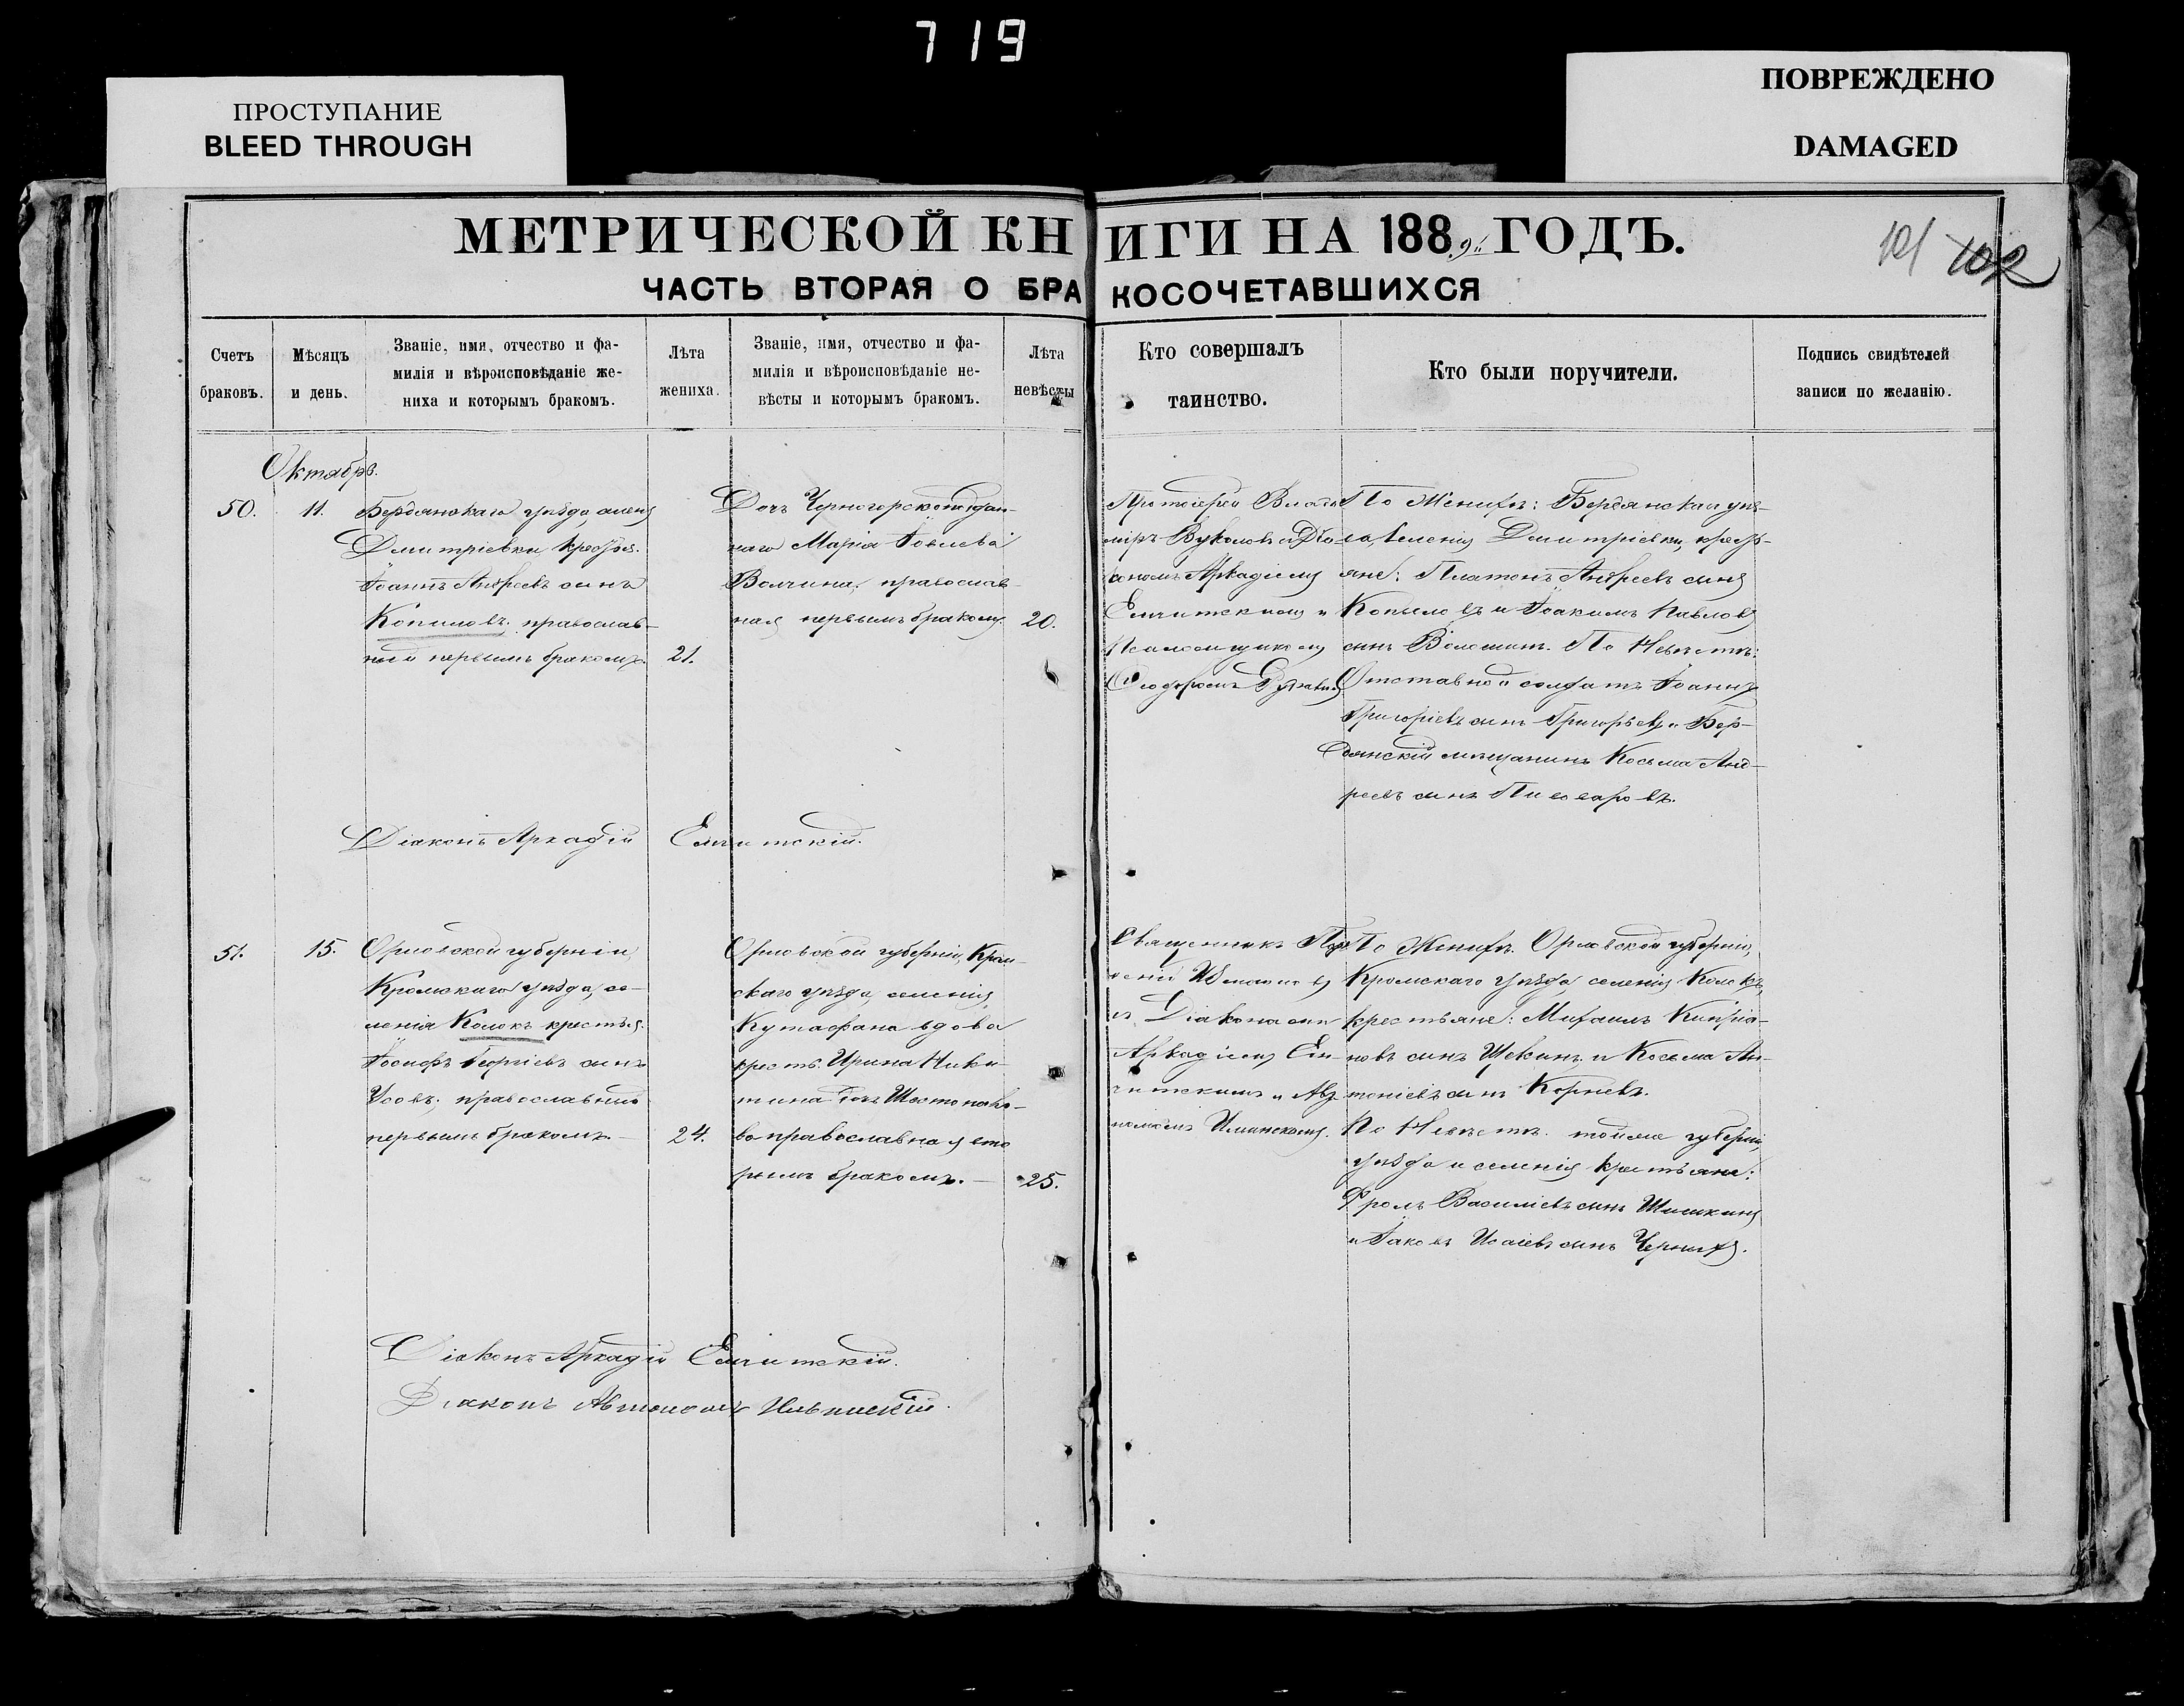 719
ПРОСТУПАНИЕ
BLEED THROUGH
ПОВРЕЖДЕНО
DAMAGED
МЕТРИЧЕСКОЙ КНИГИ НА 188 9 ГОДЪ.
101 102
ЧАСТЬ ВТОРАЯ О БРАКОСОЧЕТАВШИХСЯ
Счетъ
браковъ.
Мѣсяцъ
и день.
Званіе, имя, отчество и фа-
милія и вѣроисповѣданіе же-
ниха и которымъ бракомъ.
Лѣта
жениха.
Званіе, имя, отчество и фа-
милія и вѣроисповѣданіе не-
вѣсты и которымъ бракомъ.
Лѣта
невѣсты
Кто совершалъ
таинство.
Кто были поручители.
Подпись свидѣтелей
записи по желанію.
Октябрь.
50.
11.
Бердянскаго уѣзда, селенія
Дмитріевки крестья.
Іоаннъ Андреевъ сынъ
Копиловъ; православ-
ный первымъ бракомъ.
21.
Дочь Черногорскоподдан-
наго Марія
Волчина, православ-
ная первымъ бракомъ.
20.
Протоіерей Влади
міръ Вуколовъ съ Діа-
кономъ Аркадіемъ
Елчитскимъ и
Псаломщикомъ
Ѳеодоромъ
По Женихѣ: Бердянскаго уѣз-
да, селенія Дмитріевки, кресть-
яне: Платонъ Андреевъ сынъ
Копиловъ и Іоакимъ Павловъ
сынъ Волошинъ. По Невѣстѣ:
Отставной солдатъ Іоаннъ
Григоріевъ сынъ Григорьевъ и Бер-
дянскій мѣщанинъ Косьма Анд-
реевъ сынъ Писаровъ.
Діаконъ Аркадій Елчитскій.
51.
15.
Орловской губерніи,
Кромскаго уѣзда, се-
ленія Колокъ крестья.
Іосифъ Георгіевъ сынъ
Усовъ; православный
первымъ бракомъ.
24.
Орловской губерніи, Кром-
скаго уѣзда, селенія
Кутафина вдова
крест. Ирина Ники-
тина дочь
ва православная вто
рымъ бракомъ.
25.
Священникъ
съ Діаконами
Аркадіемъ Ел-
читскимъ и Авт
номомъ Ильинскимъ.
По Женихѣ. Орловской губерніи,
Кромскаго уѣзда, селенія Колокъ,
крестьяне: Михаилъ Кипріа-
новъ сынъ Щекинъ и Косьма Ан-
тоніевъ сынъ Корневъ.
По Невѣстѣ. той же губерніи,
уѣзда и селенія крестьяне:
Фролъ Василіевъ сынъ Шишкинъ
и Іаковъ Исаіевъ сынъ Черныхъ.
Діаконъ Аркадій Елчитскій.
Діаконъ Автономъ Ильинскій.